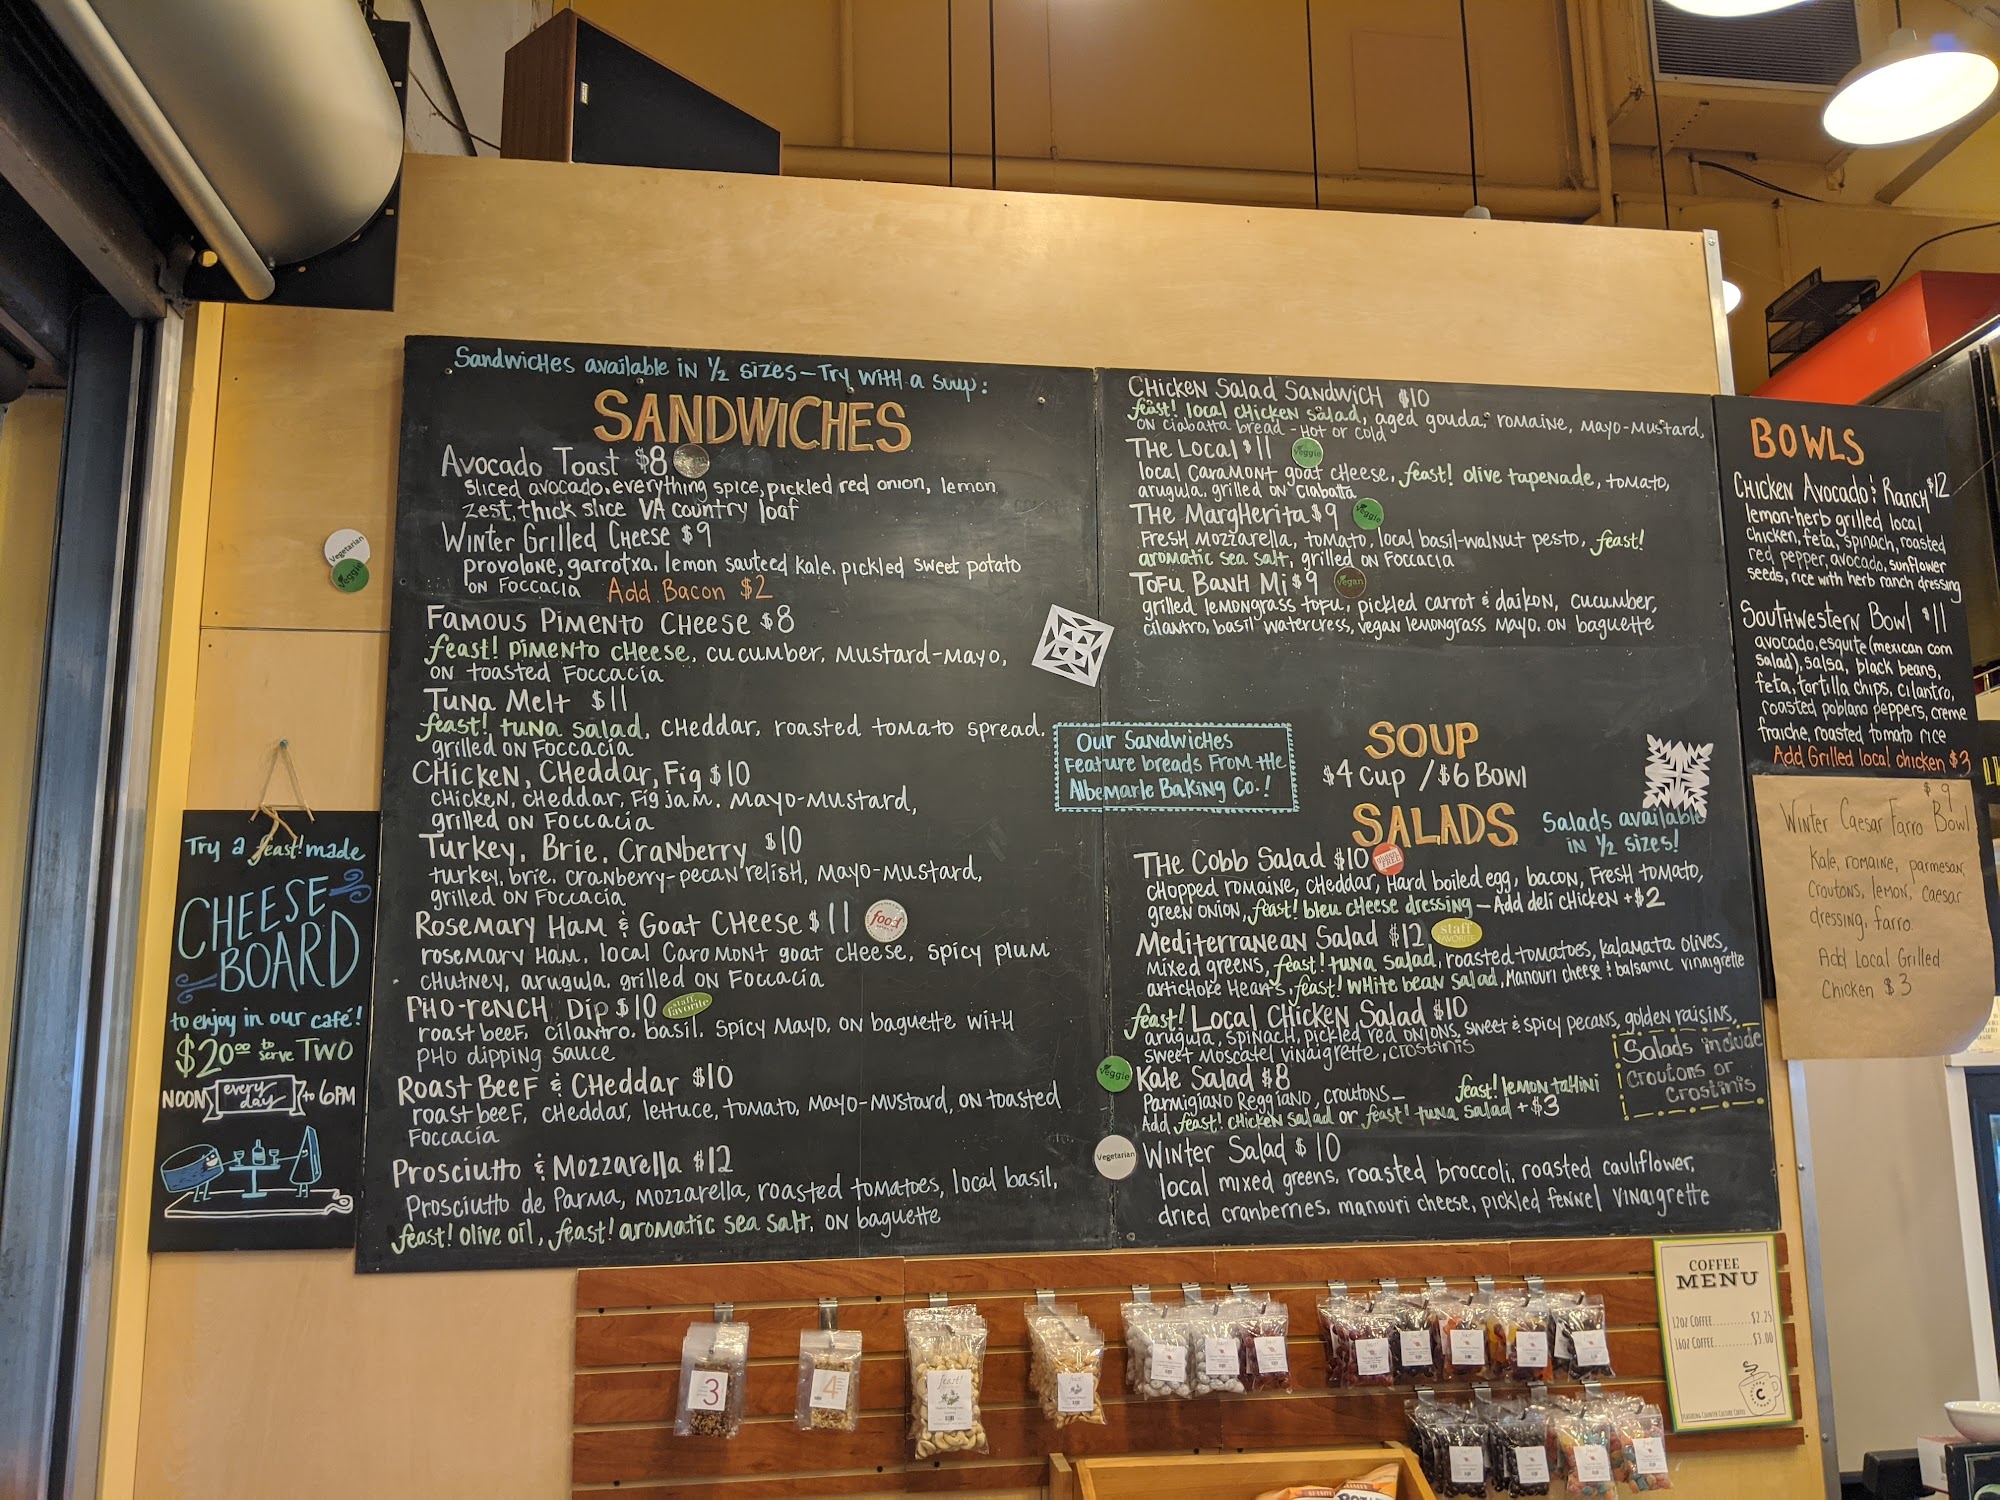 Sandwiches available in 1/2 sizes - Try with a soup:
SANDWICHES
Avocado Toast $8
sliced avocado, everything spice, pickled red onion, lemon
zest, thick slice VA country loaf
Winter Grilled Cheese $9
provolone, garrotxa, lemon sauteed kale, pickled sweet potato
on Foccacia Add Bacon $2
Famous Pimento Cheese $8
feast! pimento cheese, cucumber, mustard-mayo,
on toasted Foccacia
Tuna Melt $11
feast! tuna salad, cheddar, roasted tomato spread,
grilled on Foccacia
Chicken, Cheddar, Fig $10
chicken, cheddar, fig jam, mayo-mustard,
grilled on Foccacia
Turkey, Brie, Cranberry $10
turkey, brie, cranberry-pecan relish, mayo-mustard,
grilled on Foccacia
Rosemary Ham & Goat Cheese $11
food
rosemary ham, local Caromont goat cheese, spicy plum
chutney, arugula, grilled on Foccacia
Pho-rench Dip $10
staff favorite
roast beef, cilantro, basil, spicy mayo, on baguette with
pho dipping sauce
Roast Beef & Cheddar $10
roast beef, cheddar, lettuce, tomato, mayo-mustard, on toasted
Foccacia
Prosciutto & Mozzarella $12
Prosciutto de Parma, mozzarella, roasted tomatoes, local basil,
feast! olive oil, feast! aromatic sea salt, on baguette
Chicken Salad Sandwich $10
feast! local chicken salad, aged gouda, romaine, mayo-mustard,
on ciabatta bread - hot or cold
The Local $11
Veggie
local Caramont goat cheese, feast! olive tapenade, tomato,
arugula, grilled on ciabatta
The Margherita $9
Veggie
Fresh mozzarella, tomato, local basil-walnut pesto, feast!
aromatic sea salt, grilled on Foccacia
Tofu Banh Mi $9
vegan
grilled lemongrass tofu, pickled carrot & daikon, cucumber,
cilantro, basil watercress, vegan lemongrass mayo, on baguette
Our Sandwiches
Feature breads from the
Albemarle Baking Co.!
SOUP
$4 Cup / $6 Bowl
SALADS
Salads available
in 1/2 sizes!
The Cobb Salad $10
gluten FREE
chopped romaine, cheddar, hard boiled egg, bacon, fresh tomato,
green onion, feast! bleu cheese dressing - Add deli chicken +$2
Mediterranean Salad $12
staff FAVORITE
mixed greens, feast! tuna salad, roasted tomatoes, kalamata olives,
artichoke hearts, feast! white bean salad, manouri cheese & balsamic vinaigrette
feast! Local Chicken Salad $10
arugula, spinach, pickled red onions, sweet & spicy pecans, golden raisins,
sweet moscatel vinaigrette, crostinis
Salads include
croutons or
crostinis
Veggie
Kale Salad $8
Parmigiano Reggiano, croutons - feast! lemon tahini
Add feast! chicken salad or feast! tuna salad +$3
Vegetarian
Winter Salad $10
local mixed greens, roasted broccoli, roasted cauliflower,
dried cranberries, manouri cheese, pickled fennel vinaigrette
BOWLS
Chicken Avocado & Ranch $12
lemon-herb grilled local
chicken, feta, spinach, roasted
red pepper, avocado, sunflower
seeds, rice with herb ranch dressing
Southwestern Bowl $11
avocado, esquite (mexican corn
salad), salsa, black beans,
feta, tortilla chips, cilantro,
roasted poblano peppers, creme
fraiche, roasted tomato rice
Add Grilled local chicken $3
$9
Winter Caesar Farro Bowl
Kale, romaine, parmesan,
Croutons, lemon, caesar
dressing, farro.
Add Local Grilled
Chicken $3
Vegetarian
Veggie
Try a feast! made
CHEESE
BOARD
to enjoy in our café!
$20.00 to serve TWO
NOON every day to 6PM
COFFEE
MENU
12oz COFFEE..........$2.25
16oz COFFEE..........$3.00
C
FEATURING COUNTER CULTURE COFFEE
3
4
feast!